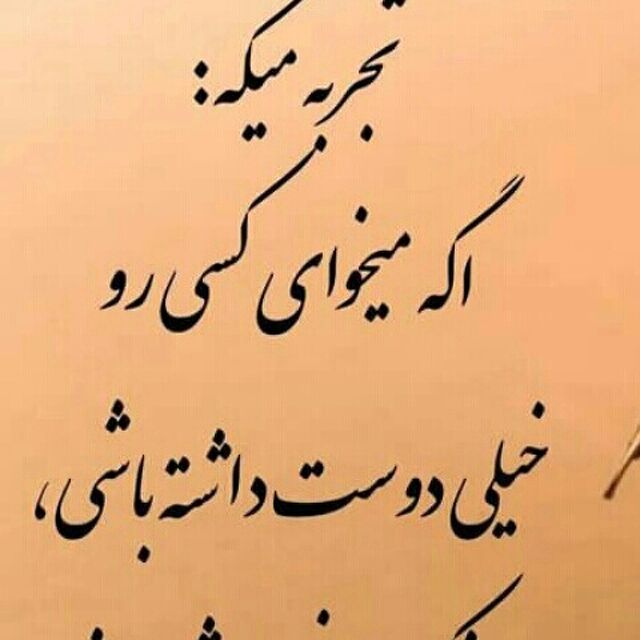 تجربه میگه:
اگه میخوای کسی رو
خیلی دوست داشته باشی،